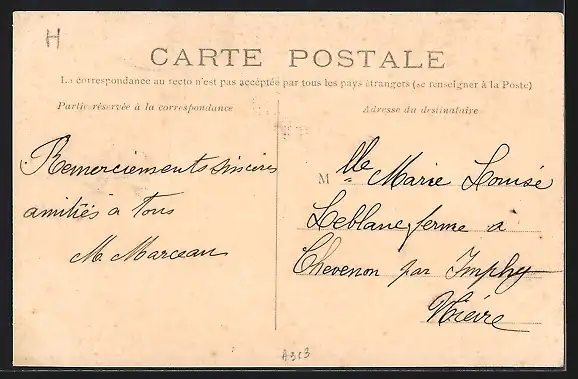 H
CARTE POSTALE
La correspondance au recto n'est pas acceptée par tous les pays étrangers (se renseigner à la Poste)
Partie réservée à la correspondance
Adresse du destinataire
Remerciements sincères
amitiés a tous
M Marceau
Mlle Marie Louise
Leblanc, ferme a
Chevenon par Imphy
Nièvre
A313